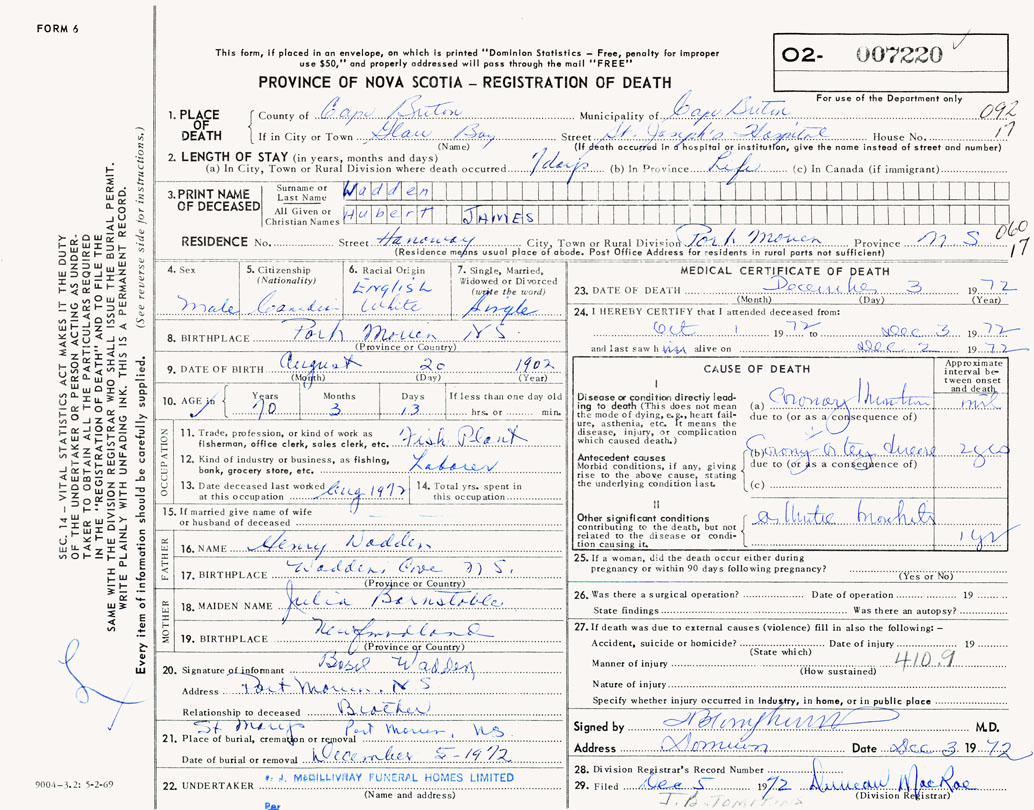 FORM 6
This form, if placed in an envelope, on which is printed "Dominion Statistics – Free, penalty for improper
use $50," and properly addressed will pass through the mail "FREE"
PROVINCE OF NOVA SCOTIA – REGISTRATION OF DEATH
O2- 007220
For use of the Department only
1. PLACE OF DEATH
County of Cape Breton Municipality of Cape Breton 092
If in City or Town Glace Bay Street St. Joseph's Hospital House No. 17
(Name) (If death occurred in a hospital or institution, give the name instead of street and number)
2. LENGTH OF STAY (in years, months and days)
(a) In City, Town or Rural Division where death occurred 7 days (b) In Province Life (c) In Canada (if immigrant)
3. PRINT NAME OF DECEASED
Surname or Last Name Wadden
All Given or Christian Names Hubert JAMES
060
17
RESIDENCE No. Street Hanoway City, Town or Rural Division Port Morien Province N S
(Residence means usual place of abode. Post Office Address for residents in rural parts not sufficient)
4. Sex Male
5. Citizenship (Nationality)
6. Racial Origin English White
7. Single, Married, Widowed or Divorced (write the word) Single
8. BIRTHPLACE Port Morien N S
(Province or Country)
9. DATE OF BIRTH August 20 1902
(Month) (Day) (Year)
10. AGE in Years 70 Months 3 Days 13 If less than one day old
hrs. or min.
OCCUPATION
11. Trade, profession, or kind of work as
fisherman, office clerk, sales clerk, etc. Fish Plant
12. Kind of industry or business, as fishing,
bank, grocery store, etc. Laborer
13. Date deceased last worked
at this occupation Aug 1972
14. Total yrs. spent in
this occupation
15. If married give name of wife
or husband of deceased
FATHER
16. NAME Henry Wadden
17. BIRTHPLACE Waddens Cove N S.
(Province or Country)
MOTHER
18. MAIDEN NAME Julia Barnstable
19. BIRTHPLACE Newfoundland
(Province or Country)
20. Signature of informant Basil Wadden
Address Port Morien, N S
Relationship to deceased Brother
St Marys Port Morien, NS
21. Place of burial, cremation or removal
Date of burial or removal December 5-1972
22. UNDERTAKER McGILLIVRAY FUNERAL HOMES LIMITED
(Name and address)
Per
MEDICAL CERTIFICATE OF DEATH
23. DATE OF DEATH December 3 1972
(Month) (Day) (Year)
24. I HEREBY CERTIFY that I attended deceased from:
Oct 1 1972 to Dec 3 1972
and last saw him alive on Dec 2 1972
CAUSE OF DEATH
Approximate interval between onset and death
I
Disease or condition directly leading to death (This does not mean the mode of dying, e.g., heart failure, asthenia, etc. It means the disease, injury, or complication which caused death.)
(a) Coronary
due to (or as a consequence of)
Antecedent causes
Morbid conditions, if any, giving rise to the above cause, stating the underlying condition last.
(b) Coronary artery disease
due to (or as a consequence of)
(c)
II
Other significant conditions
contributing to the death, but not related to the disease or condition causing it.
asthmatic bronchitis 1 yr
25. If a woman, did the death occur either during
pregnancy or within 90 days following pregnancy?
(Yes or No)
26. Was there a surgical operation? Date of operation 19
State findings Was there an autopsy?
27. If death was due to external causes (violence) fill in also the following: –
Accident, suicide or homicide? Date of injury 19
(State which)
Manner of injury 410.9
(How sustained)
Nature of injury
Specify whether injury occurred in industry, in home, or in public place
Signed by M.D.
Address Dominion Date Dec 3 1972
28. Division Registrar's Record Number
29. Filed Dec 5 1972 Duncan MacRae
(Division Registrar)
SEC. 14 – VITAL STATISTICS ACT MAKES IT THE DUTY
OF THE UNDERTAKER OR PERSON ACTING AS UNDER-
TAKER TO OBTAIN ALL THE PARTICULARS REQUIRED
IN THE "REGISTRATION OF DEATH" AND TO FILE THE
SAME WITH THE DIVISION REGISTRAR WHO SHALL ISSUE THE BURIAL PERMIT.
WRITE PLAINLY WITH UNFADING INK. THIS IS A PERMANENT RECORD.
Every item of information should be carefully supplied. (See reverse side for instructions.)
9004-3.2: 5-2-69